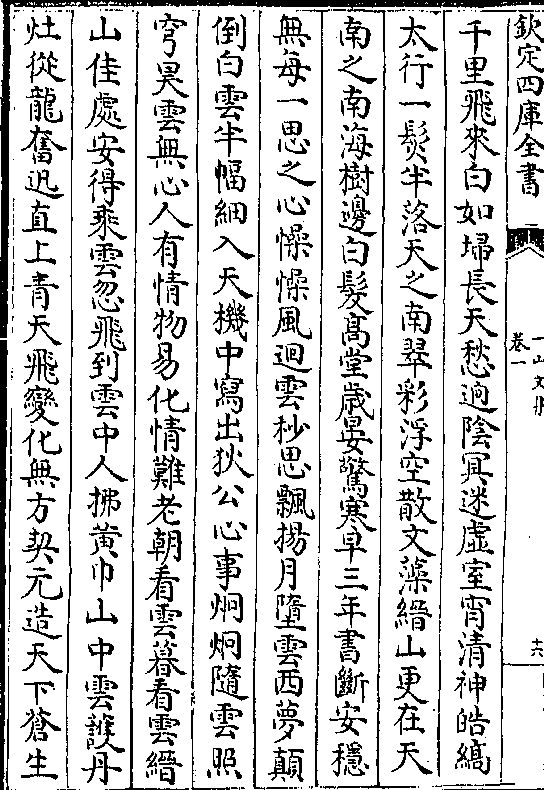 欽定四庫全書
卷一
一山文集
十六
千里飛來白如埽長天愁逈陰冥迷虛室宵清神皓縞
太行一髮半落天之南翠彩浮空散文藻縉山更在天
南之南海樹邊白髮高堂歲晏驚寒早三年書斷安穩
無每一思之心懆懆風迴雲杪思飄揚月墮雲西夢顛
倒白雲半幅細入天機中寫出狄公心事炯炯隨雲照
穹昊雲無心人有情物易化情難老朝看雲暮看雲縉
山佳處安得乘雲忽飛到雲中人拂黄巾山中雲護丹
灶從龍奮迅直上青天飛變化無方契元造天下蒼生